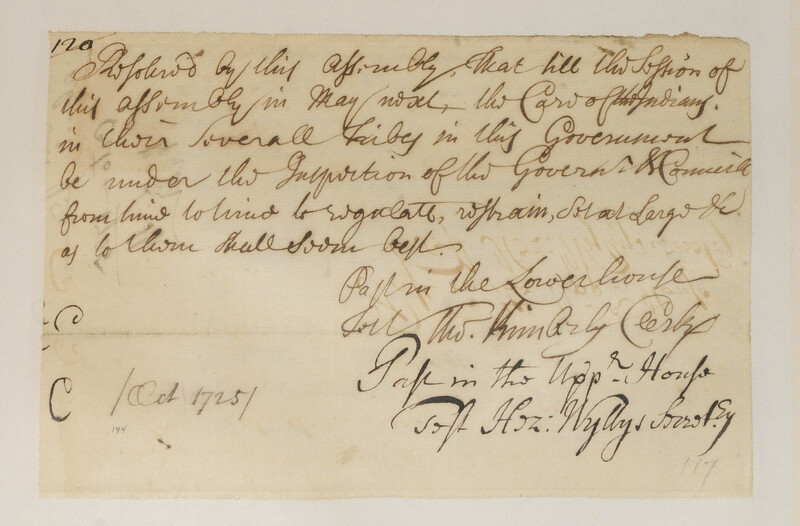 120
Resolved by this Assembly, That till the Session of
this assembly in May next, the Care of the Indians.
in their Severall Tribes in this Government
be under the Inspection of the Govern.r & Councill
from time to time to regulate, restrain, set at Large &c
as to them shall seem best.
Past in the Lower house
Test Tho. Kimberly Clerk
Past in the Upp.r House
Test Hez: Wyllys Secret.ry
C
C
/Oct 1725/
144
117